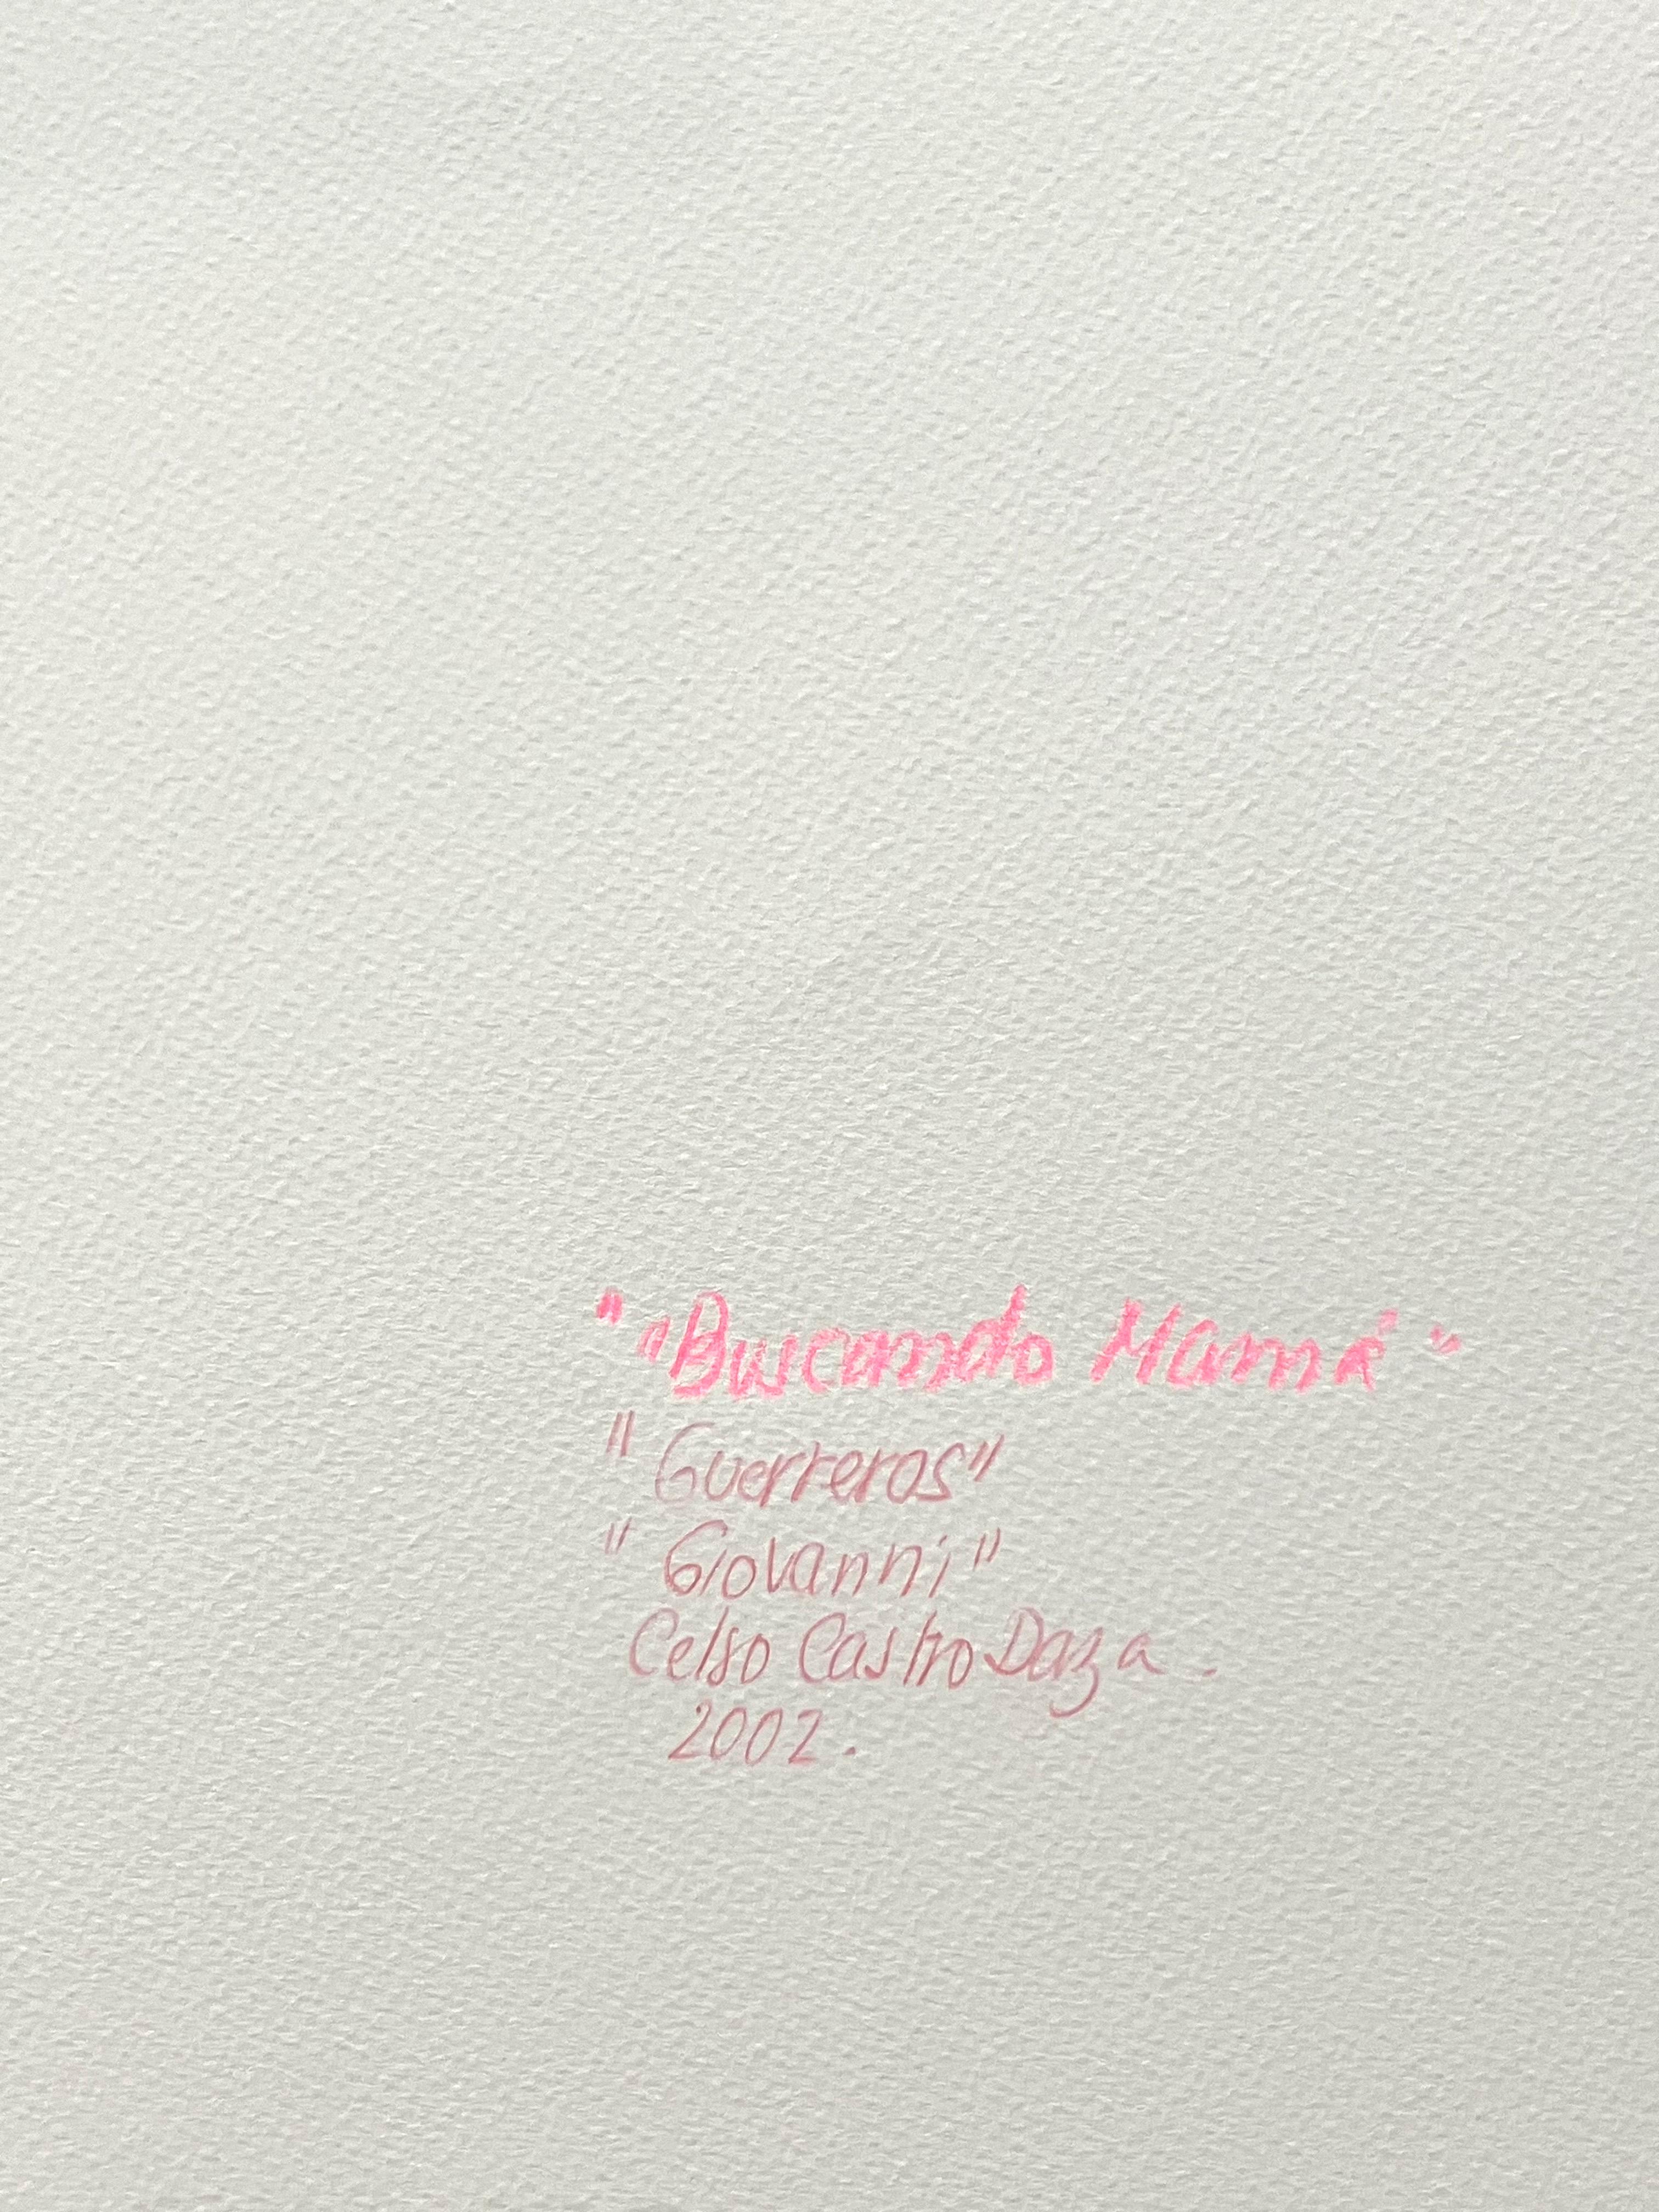 " "Buscando Mamá"
"Guerreros"
"Giovanni"
Celso Castro Daza.
2002.